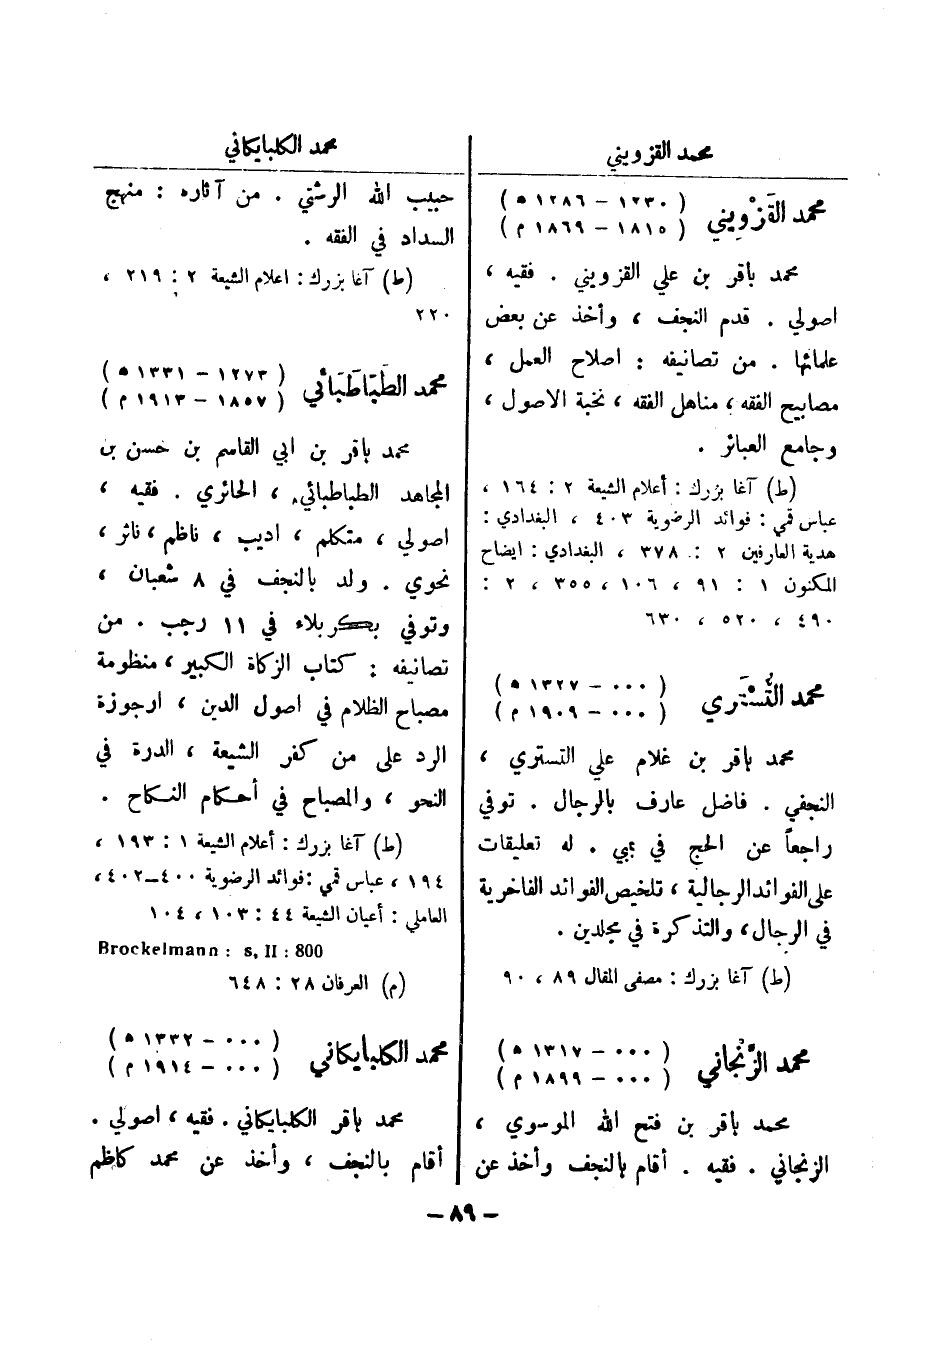 محمد القزويني
محمد القَزْوِيني
( ١٢٣٠ – ١٢٨٦ ه )
( ١٨١٥ – ١٨٦٩ م )
محمد باقر بن علي القزويني . فقيه ،
اصولي . قدم النجف ، وأخذ عن بعض
علمائها . من تصانيفه : اصلاح العمل ،
مصابيح الفقه ، مناهل الفقه ، نخبة الاصول ،
وجامع العبائر .
(ط) آغا بزرك : أعلام الشيعة ٢ : ١٦٤ ،
عباس قمي : فوائد الرضوية ٤٠٣ ، البغدادي :
هدية العارفين ٢ : ٣٧٨ ، البغدادي : ايضاح
المكنون ١ : ٩١ ، ١٠٦ ، ٣٥٥ ، ٢ :
٤٩٠ ، ٥٢٠ ، ٦٣٠
محمد التُسْتَري
( ٠٠٠ – ١٣٢٧ ه )
( ٠٠٠ – ١٩٠٩ م )
محمد باقر بن غلام علي التستري ،
النجفي . فاضل عارف بالرجال . توفي
راجعاً عن الحج في بمبي . له تعليقات
على الفوائد الرجالية ، تلخيص الفوائد الفاخرية
في الرجال ، والتذكرة في مجلدين .
(ط) آغا بزرك : مصفى المقال ٨٩ ، ٩٠
محمد الزَّنْجاني
( ٠٠٠ – ١٣١٧ ه )
( ٠٠٠ – ١٨٩٩ م )
محمد باقر بن فتح الله الموسوي ،
الزنجاني . فقيه . أقام بالنجف وأخذ عن
محمد الكلبايكاني
حبيب الله الرشتي . من آثاره : منهج
السداد في الفقه .
(ط) آغا بزرك : اعلام الشيعة ٢ : ٢١٩ ،
٢٢٠
محمد الطَبَاطَبَائي
( ١٢٧٣ – ١٣٣١ ه )
( ١٨٥٧ – ١٩١٣ م )
محمد باقر بن ابي القاسم بن حسن بن
المجاهد الطباطبائي ، الحائري . فقيه ،
اصولي ، متكلم ، اديب ، ناظم ، ناثر ،
نحوي . ولد بالنجف في ٨ شعبان ،
وتوفي بكربلاء في ١١ رجب . من
تصانيفه : كتاب الزكاة الكبير ، منظومة
مصباح الظلام في اصول الدين ، ارجوزة
الرد على من كفر الشيعة ، الدرة في
النحو ، والمصباح في أحكام النكاح .
(ط) آغا بزرك : أعلام الشيعة ١ : ١٩٣ ،
١٩٤ ، عباس قمي : فوائد الرضوية ٤٠٠–٤٠٢ ،
العاملي : أعيان الشيعة ٤٤ : ١٠٣ ، ١٠٤
Brockelmann : s, II : 800
(م) العرفان ٢٨ : ٦٤٨
محمد الكلبايكاني
( ٠٠٠ – ١٣٣٢ ه )
( ٠٠٠ – ١٩١٤ م )
محمد باقر الكلبايكاني . فقيه ، اصولي .
أقام بالنجف ، وأخذ عن محمد كاظم
– ٨٩ –